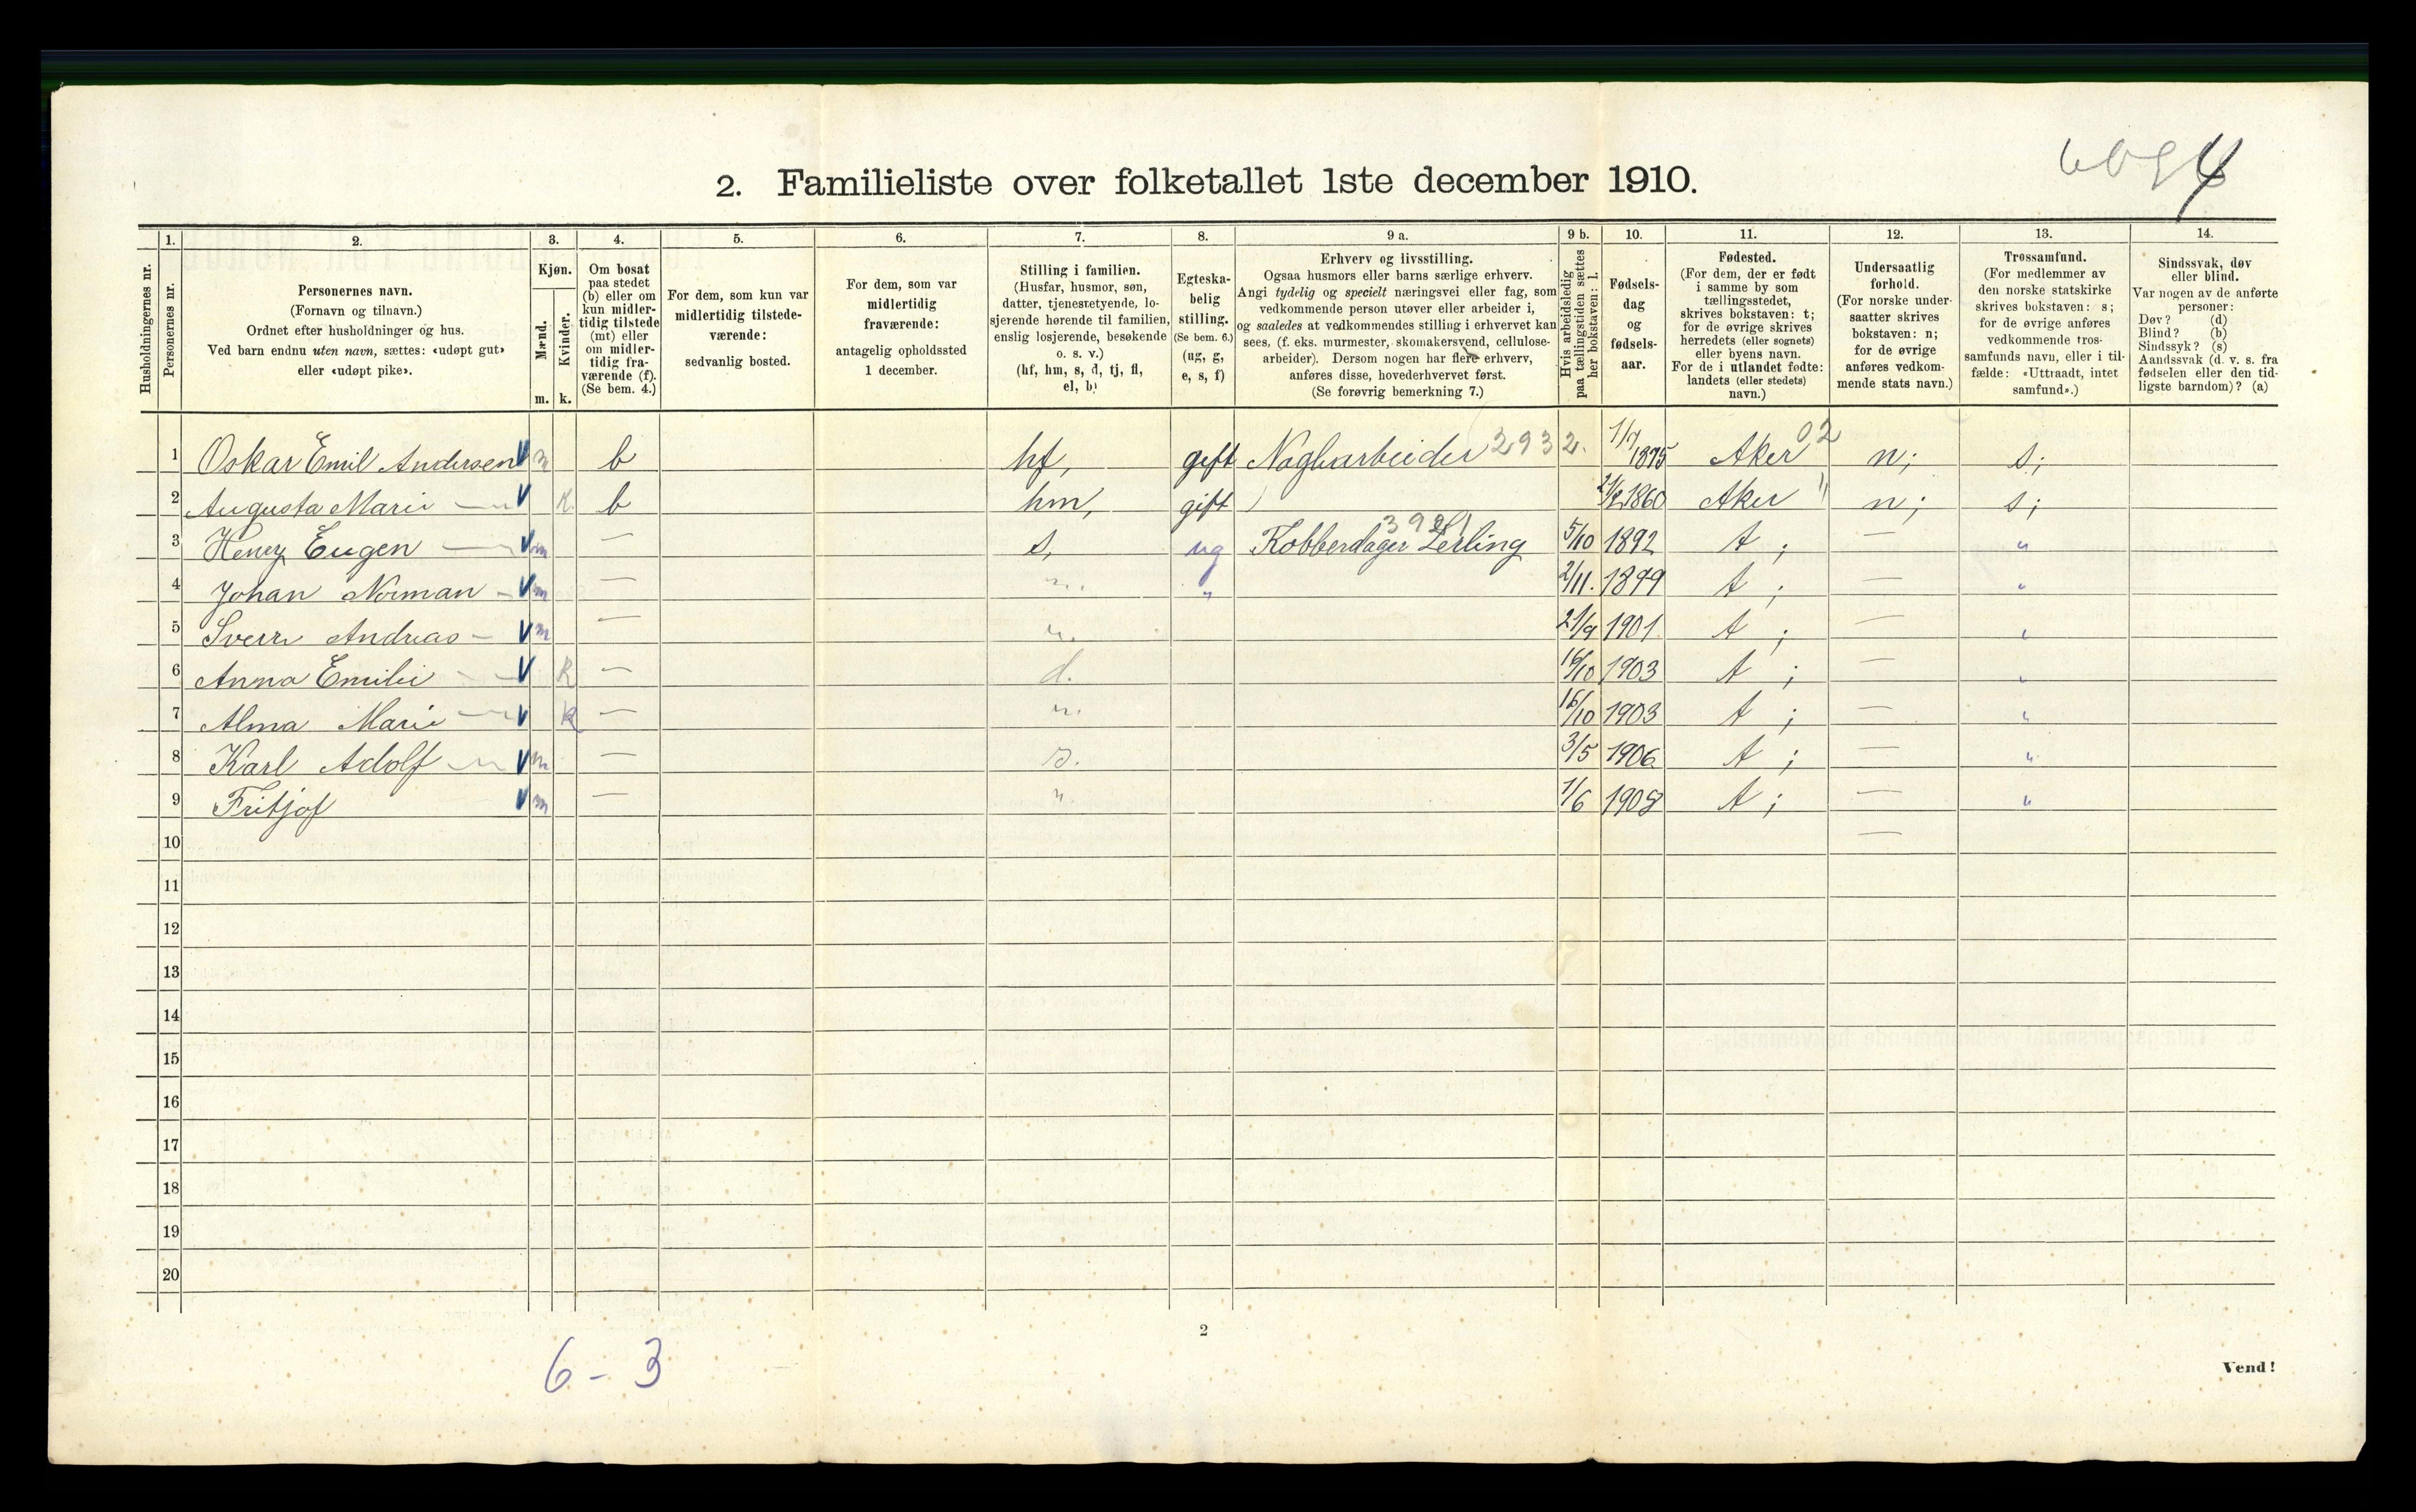 2. Familieliste over folketallet 1ste december 1910.
4
Husholdningernes nr.
1.
Personernes nr.
2.
Personernes navn.
(Fornavn og tilnavn.)
Ordnet efter husholdninger og hus.
Ved barn endnu uten navn, sættes: «udøpt gut»
eller «udøpt pike».
3.
Kjøn.
Mænd.
Kvinder.
m. k.
4.
Om bosat
paa stedet
(b) eller om
kun midler-
tidig tilstede
(mt) eller
om midler-
tidig fra-
værende (f).
(Se bem. 4.)
5.
For dem, som kun var
midlertidig tilstede-
værende:
sedvanlig bosted.
6.
For dem, som var
midlertidig
fraværende:
antagelig opholdssted
1 december.
7.
Stilling i familien.
(Husfar, husmor, søn,
datter, tjenestetyende, lo-
sjerende hørende til familien,
enslig losjerende, besøkende
o. s. v.)
(hf, hm, s, d, tj, fl,
el, b)
8.
Egteska-
belig
stilling.
(Se bem. 6.)
(ug, g,
e, s, f)
9 a.
Erhverv og livsstilling.
Ogsaa husmors eller barns særlige erhverv.
Angi tydelig og specielt næringsvei eller fag, som
vedkommende person utøver eller arbeider i,
og saaledes at vedkommendes stilling i erhvervet kan
sees, (f. eks. murmester, skomakersvend, cellulose-
arbeider). Dersom nogen har flere erhverv,
anføres disse, hovederhvervet først.
(Se forøvrig bemerkning 7.)
9 b.
Hvis arbeidsledig
paa tællingstiden sættes
her bokstaven: l.
10.
Fødsels-
dag
og
fødsels-
aar.
11.
Fødested.
(For dem, der er født
i samme by som
tællingsstedet,
skrives bokstaven: t;
for de øvrige skrives
herredets (eller sognets)
eller byens navn.
For de i utlandet fødte:
landets (eller stedets)
navn.)
12.
Undersaatlig
forhold.
(For norske under-
saatter skrives
bokstaven: n;
for de øvrige
anføres vedkom-
mende stats navn.)
13.
Trossamfund.
(For medlemmer av
den norske statskirke
skrives bokstaven: s;
for de øvrige anføres
vedkommende tros-
samfunds navn, eller i til-
fælde: «Uttraadt, intet
samfund».)
14.
Sindssvak, døv
eller blind.
Var nogen av de anførte
personer:
Døv? (d)
Blind? (b)
Sindssyk? (s)
Aandssvak (d. v. s. fra
fødselen eller den tid-
ligste barndom)? (a)
1 Oskar Emil Andersen V m b hf, gift Naglearbeider 2932. 1/7 1875 Aker 02 n; s;
2 Augusta Marie — " V k. b hm, gift 1860 Aker " n; s;
3 Henry Eugen — " V m — s, ug Kobberslager Lerling 5/10 1892 t ; — "
4 Johan Norman - V m — ". " 2/11. 1899 t ; — "
5 Sverre Andreas - V m — ". 21/9 1901 t ; — "
6 Anna Emilie - V k — d. 16/10 1903 t ; — "
7 Alma Marie — " V k — ". 16/10 1903 t ; — "
8 Karl Adolf — " V m — s. 3/5 1906 t ; — "
9 Fritjof V m — " 1/6 1908 t ; — "
10 —
11
12
13
14
15
16
17
18
19
20
2
6 - 3
Vend!